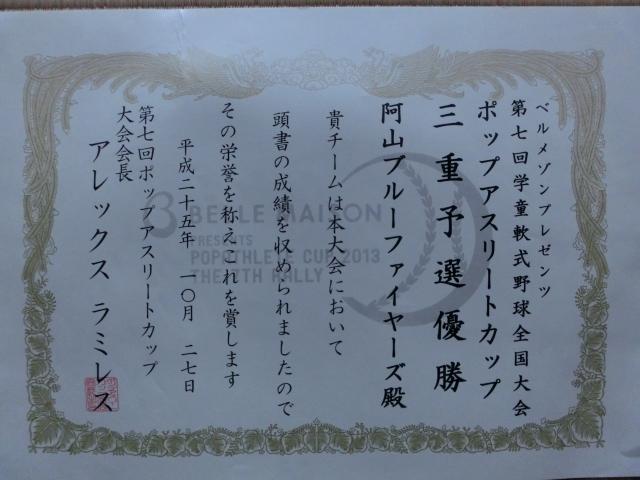 ベルメゾンプレゼンツ
第七回学童軟式野球全国大会
ポップアスリートカップ
三重予選優勝
阿山ブルーファイヤーズ殿
貴チームは本大会において
頭書の成績を収められましたので
その栄誉を称えこれを賞します
平成二十五年 一〇月 二七日
第七回ポップアスリートカップ
大会会長
アレックス ラミレス
BELLE MAISON
PRESENTS
POPATHLETE CUP 2013
THE 7TH RALLY